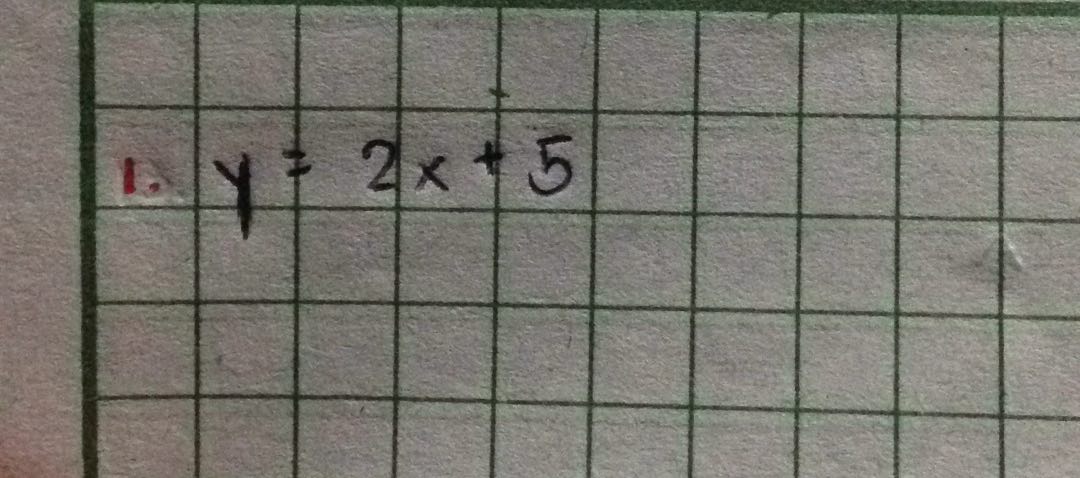 1. y = 2x + 5